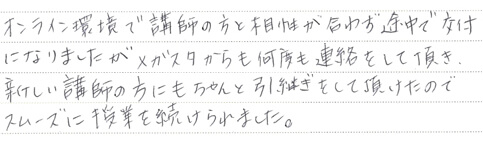 オンライン環境で講師の方と相性が合わず途中で交代
になりましたがメガスタからも何度も連絡をして頂き、
新しい講師の方にもちゃんと引継ぎをして頂けたので
スムーズに授業を続けられました。